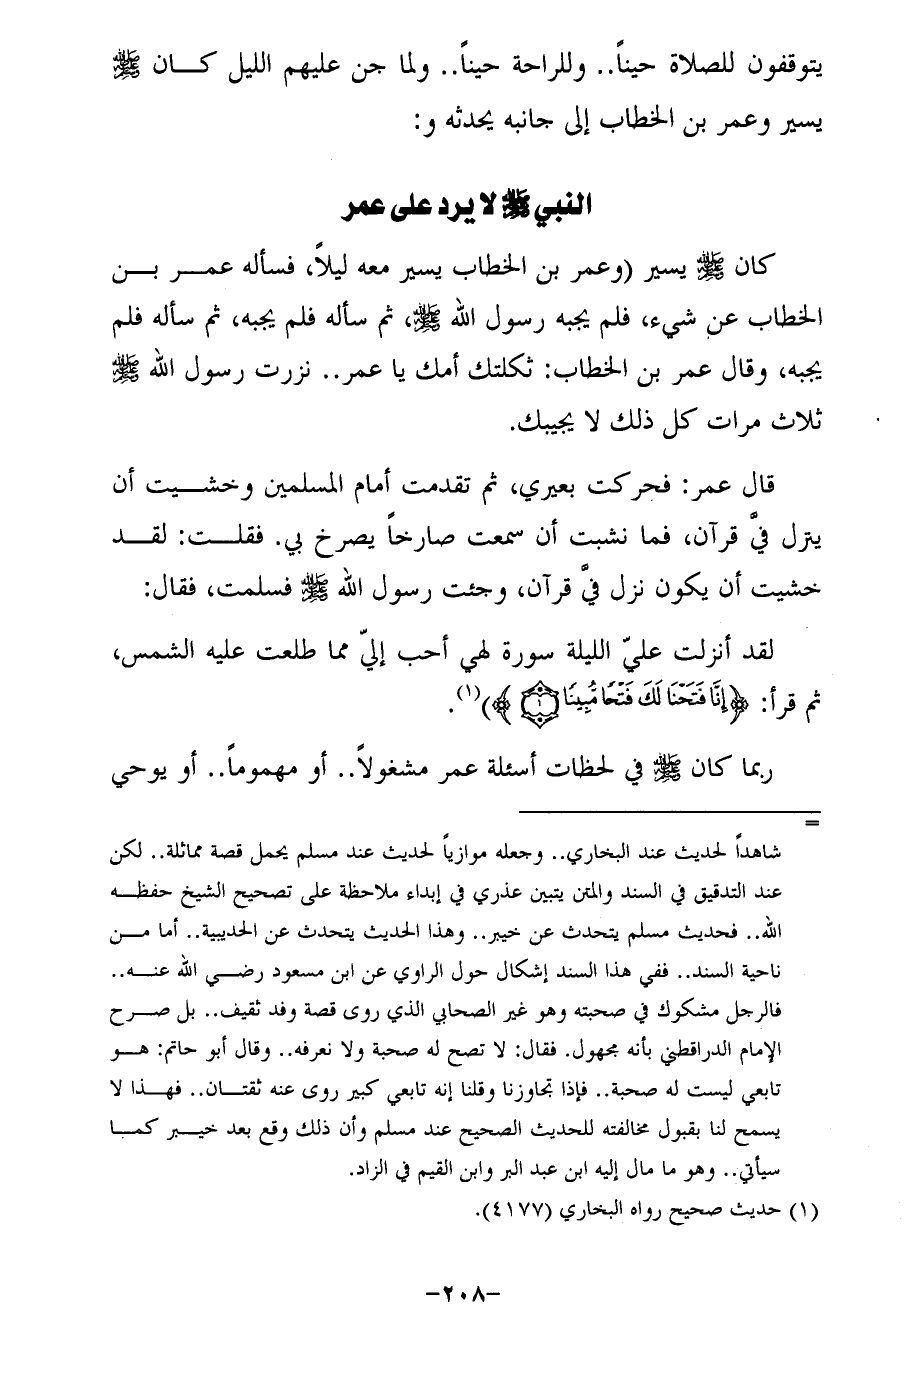 يتوقفون للصلاة حيناً.. وللراحة حيناً.. ولما جن عليهم الليل كـــان ﷺ
يسير وعمر بن الخطاب إلى جانبه يحدثه و:
النبي ﷺ لا يرد على عمر
كان ﷺ يسير (وعمر بن الخطاب يسير معه ليلاً، فسأله عمـــر بـــن
الخطاب عن شيء، فلم يجبه رسول الله ﷺ، ثم سأله فلم يجبه، ثم سأله فلم
يجبه، وقال عمر بن الخطاب: ثكلتك أمك يا عمر.. نزرت رسول الله ﷺ
ثلاث مرات كل ذلك لا يجيبك.
قال عمر: فحركت بعيري، ثم تقدمت أمام المسلمين وخشـــيت أن
ينزل فيَّ قرآن، فما نشبت أن سمعت صارخاً يصرخ بي. فقلـــت: لقـــد
خشيت أن يكون نزل فيَّ قرآن، وجئت رسول الله ﷺ فسلمت، فقال:
لقد أنزلت عليّ الليلة سورة لهي أحب إليّ مما طلعت عليه الشمس،
ثم قرأ: ﴿إِنَّا فَتَحْنَا لَكَ فَتْحًا مُّبِينًا ۝١﴾)(١).
ربما كان ﷺ في لحظات أسئلة عمر مشغولاً.. أو مهموماً.. أو يوحي
=
شاهداً لحديث عند البخاري.. وجعله موازياً لحديث عند مسلم يحمل قصة مماثلة.. لكن
عند التدقيق في السند والمتن يتبين عذري في إبداء ملاحظة على تصحيح الشيخ حفظـــه
الله.. فحديث مسلم يتحدث عن خيبر.. وهذا الحديث يتحدث عن الحديبية.. أما مـــن
ناحية السند.. ففي هذا السند إشكال حول الراوي عن ابن مسعود رضـــي الله عنـــه..
فالرجل مشكوك في صحبته وهو غير الصحابي الذي روى قصة وفد ثقيف.. بل صـــرح
الإمام الدراقطني بأنه مجهول. فقال: لا تصح له صحبة ولا نعرفه.. وقال أبو حاتم: هـــو
تابعي ليست له صحبة.. فإذا تجاوزنا وقلنا إنه تابعي كبير روى عنه ثقتـــان.. فهـــذا لا
يسمح لنا بقبول مخالفته للحديث الصحيح عند مسلم وأن ذلك وقع بعد خيـــبر كمـــا
سيأتي.. وهو ما مال إليه ابن عبد البر وابن القيم في الزاد.
(١) حديث صحيح رواه البخاري (٤١٧٧).
-٢٠٨-